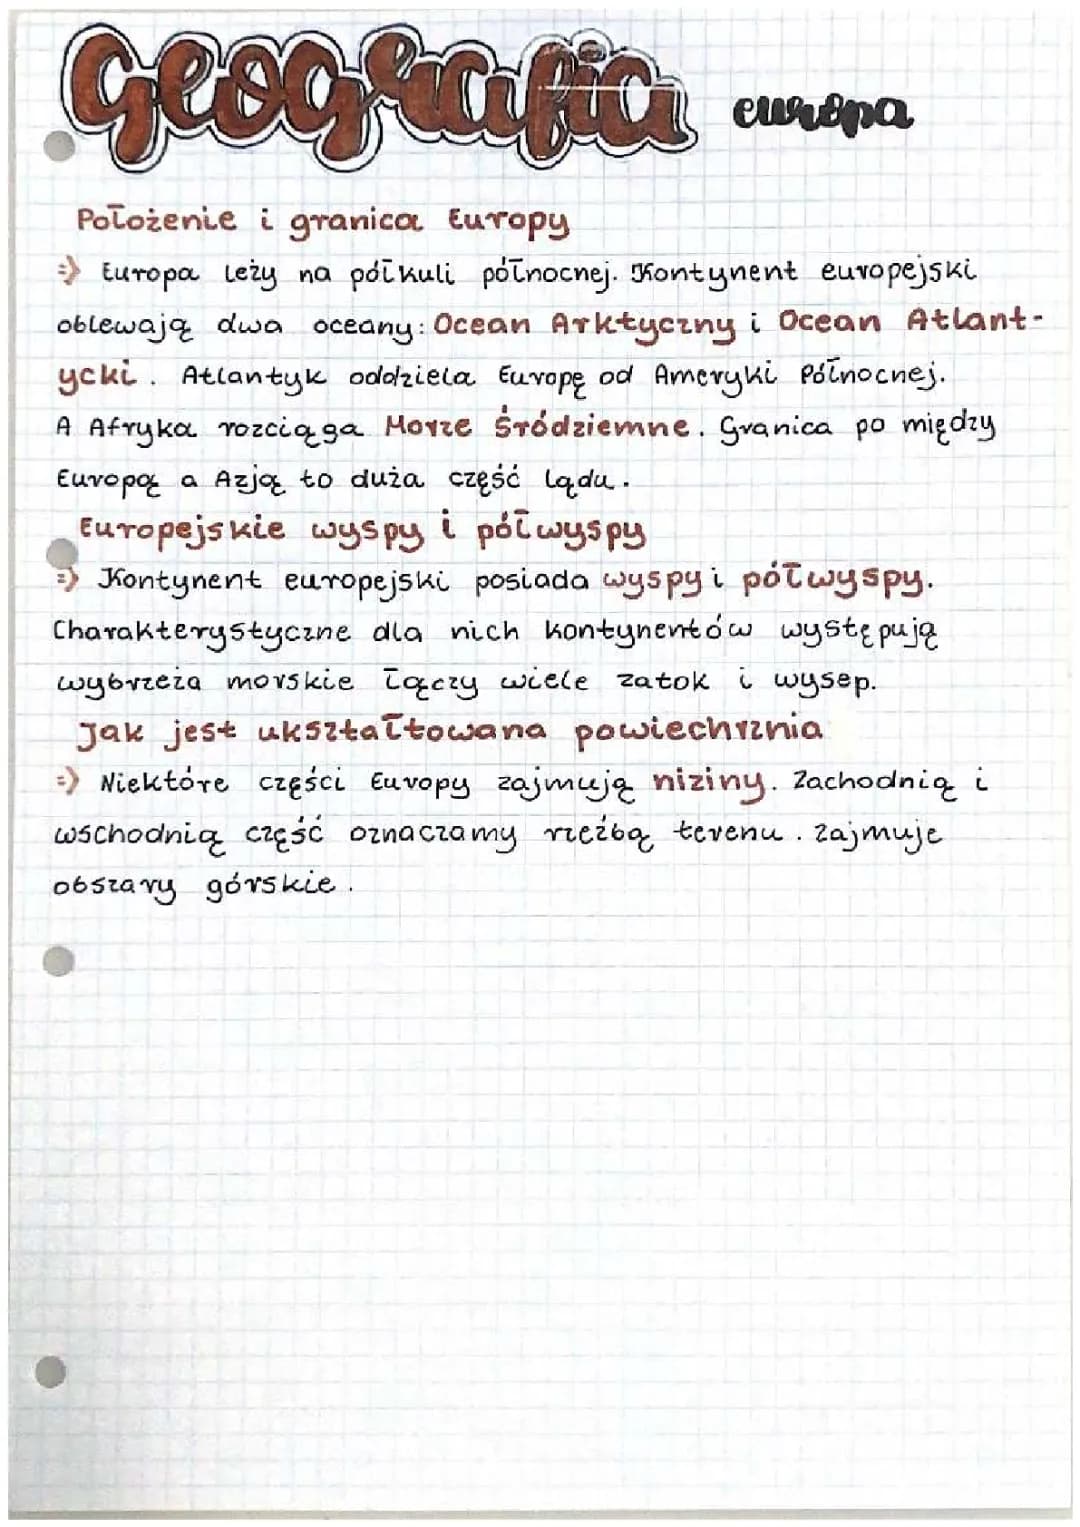 Geografia europa
Położenie i granica Europy
=> Europa leży na półkuli północnej. Kontynent europejski
oblewają dwa oceany: Ocean Arktyczny i Ocean Atlant-
ycki. Atlantyk oddziela Europę od Ameryki Północnej.
A Afryka rozciąga Morze Śródziemne. Granica po między
Europą a Azją to duża część lądu.
Europejskie wyspy i półwyspy
=> Kontynent europejski posiada wyspy i półwyspy.
Charakterystyczne dla nich kontynentów występują
wybrzeża morskie łączy wiele zatok i wysep.
Jak jest ukształtowana powiechrznia
=> Niektóre części Europy zajmują niziny. Zachodnią i
wschodnią część oznaczamy rzeźbą terenu. Zajmuje
obszary górskie.